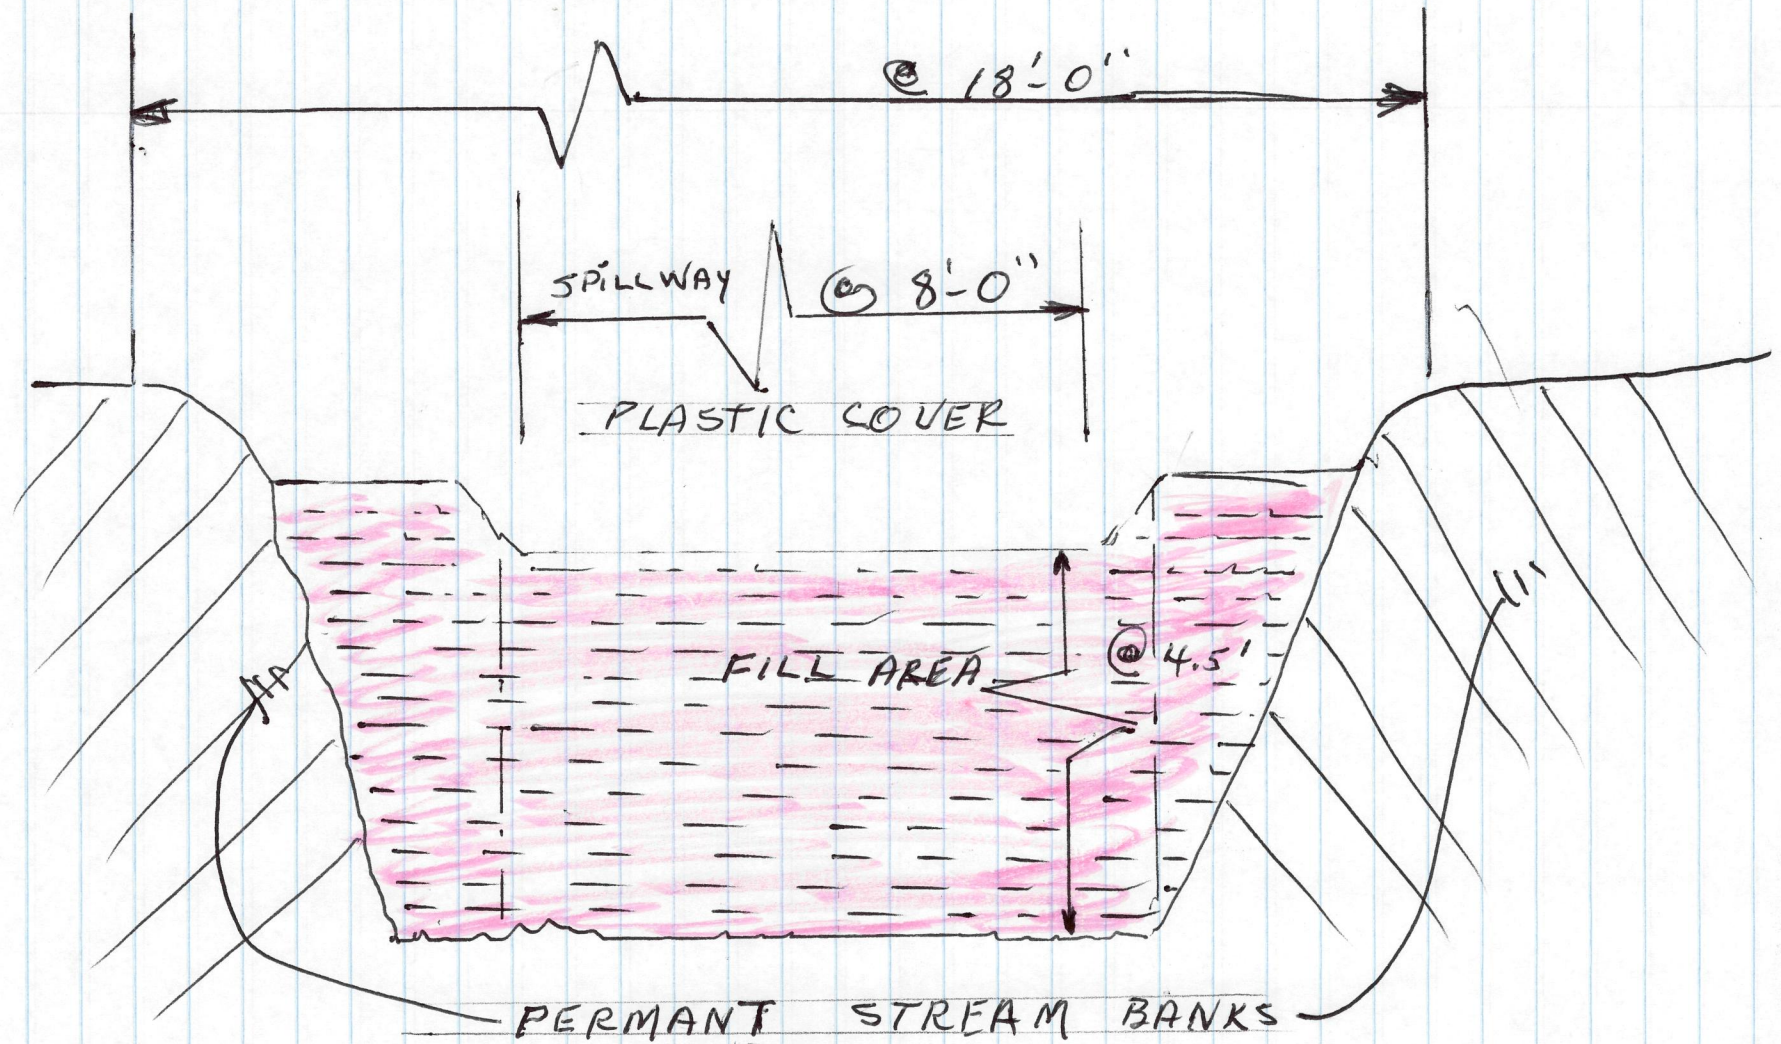 @ 18'-0"
SPILLWAY @ 8'-0"
PLASTIC COVER
FILL AREA @ 4.5'
PERMANT STREAM BANKS